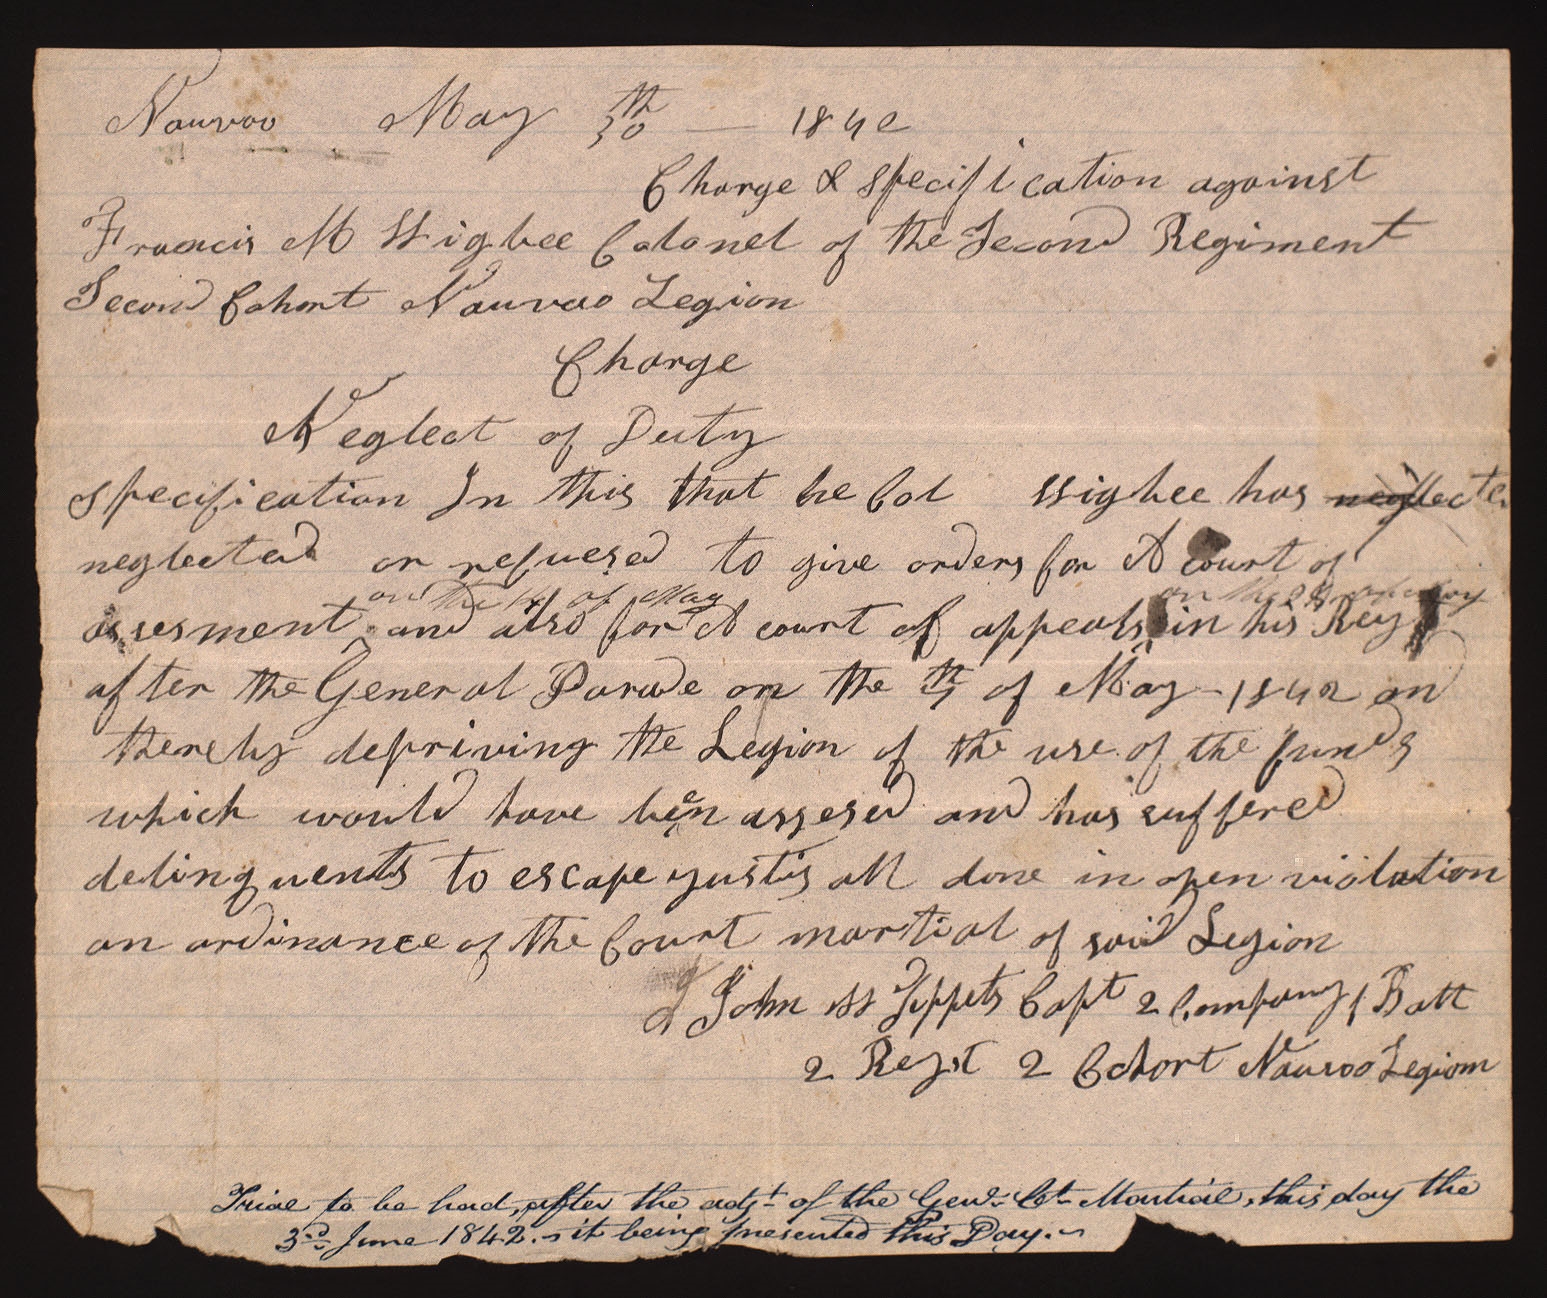 Nauvoo May 30th — 1842
Charge & specification against
Francis M Higbee Colonel of the Second Regiment
Second Cohort Nauvoo Legion
Charge
Neglect of Duty
specification In this that he Col Higbee has neglected
neglected or refuesed to give orders for A court of
on the of May on the
assesment and also for A court of appeals in his Reg
after the General Parade on the 7th of May - 1842 and
thereby depriving the Legion of the use of the funds
which would have been assesed and has suffered
delinquents to escape yustis all done in open violation
an ordinance of the Court martial of said Legion
John H Tippets Capt 2 Company 1 Batt
2 Regt 2 Cohort Nauvoo Legion
Trial to be had, after the adjt of the Genl Ct Martial, this day the
3rd June 1842. it being presented this Day.